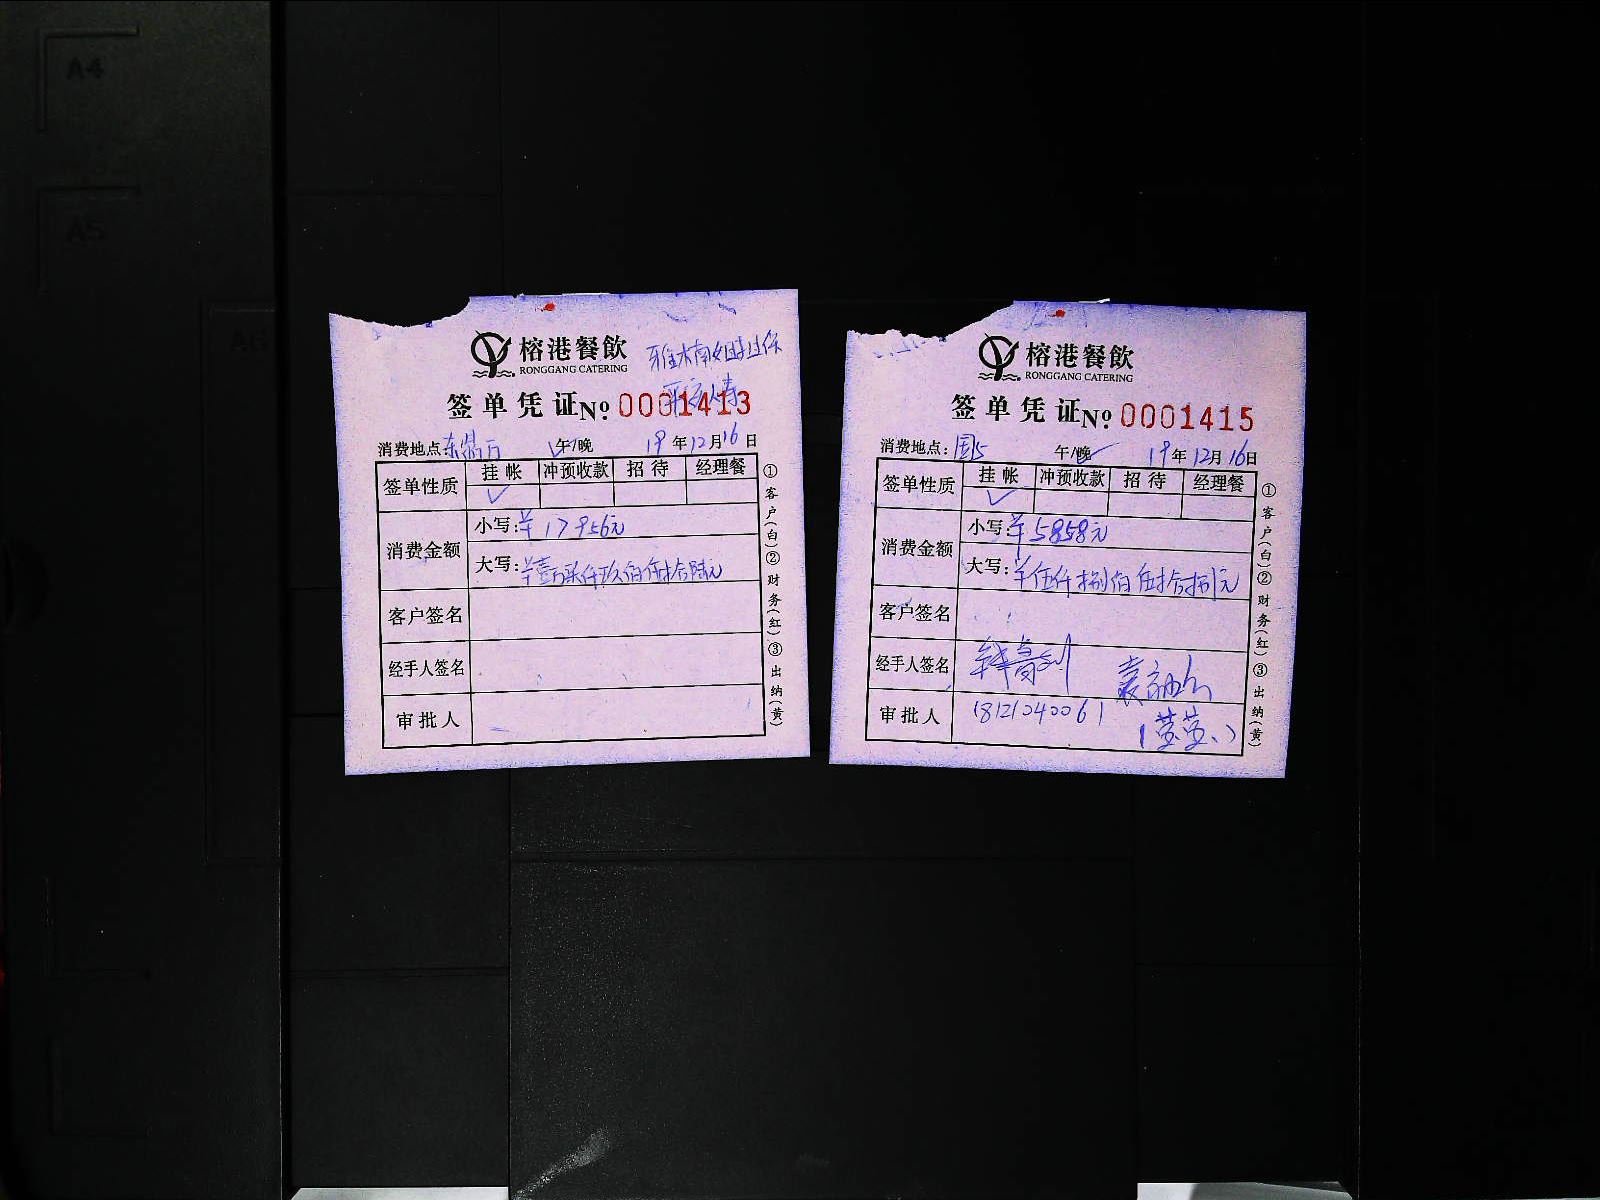 A4
A5
榕港餐飲
RONGGANG CATERING
签单凭证 No 0001413
消费地点: 午/晚 19年12月16日
签单性质 挂帐 冲预收款 招待 经理餐
✓
消费金额
小写:¥17956元
大写:¥壹万柒仟玖佰伍拾陆元
客户签名
经手人签名
审批人
①客户(白)②财务(红)③出纳(黄)
榕港餐飲
RONGGANG CATERING
签单凭证 No 0001415
消费地点:国际 午/晚✓ 19年12月16日
签单性质 挂帐 冲预收款 招待 经理餐
✓
消费金额
小写:¥5858元
大写:¥伍仟捌佰伍拾捌元
客户签名
经手人签名
审批人 18121040061
①客户(白)②财务(红)③出纳(黄)